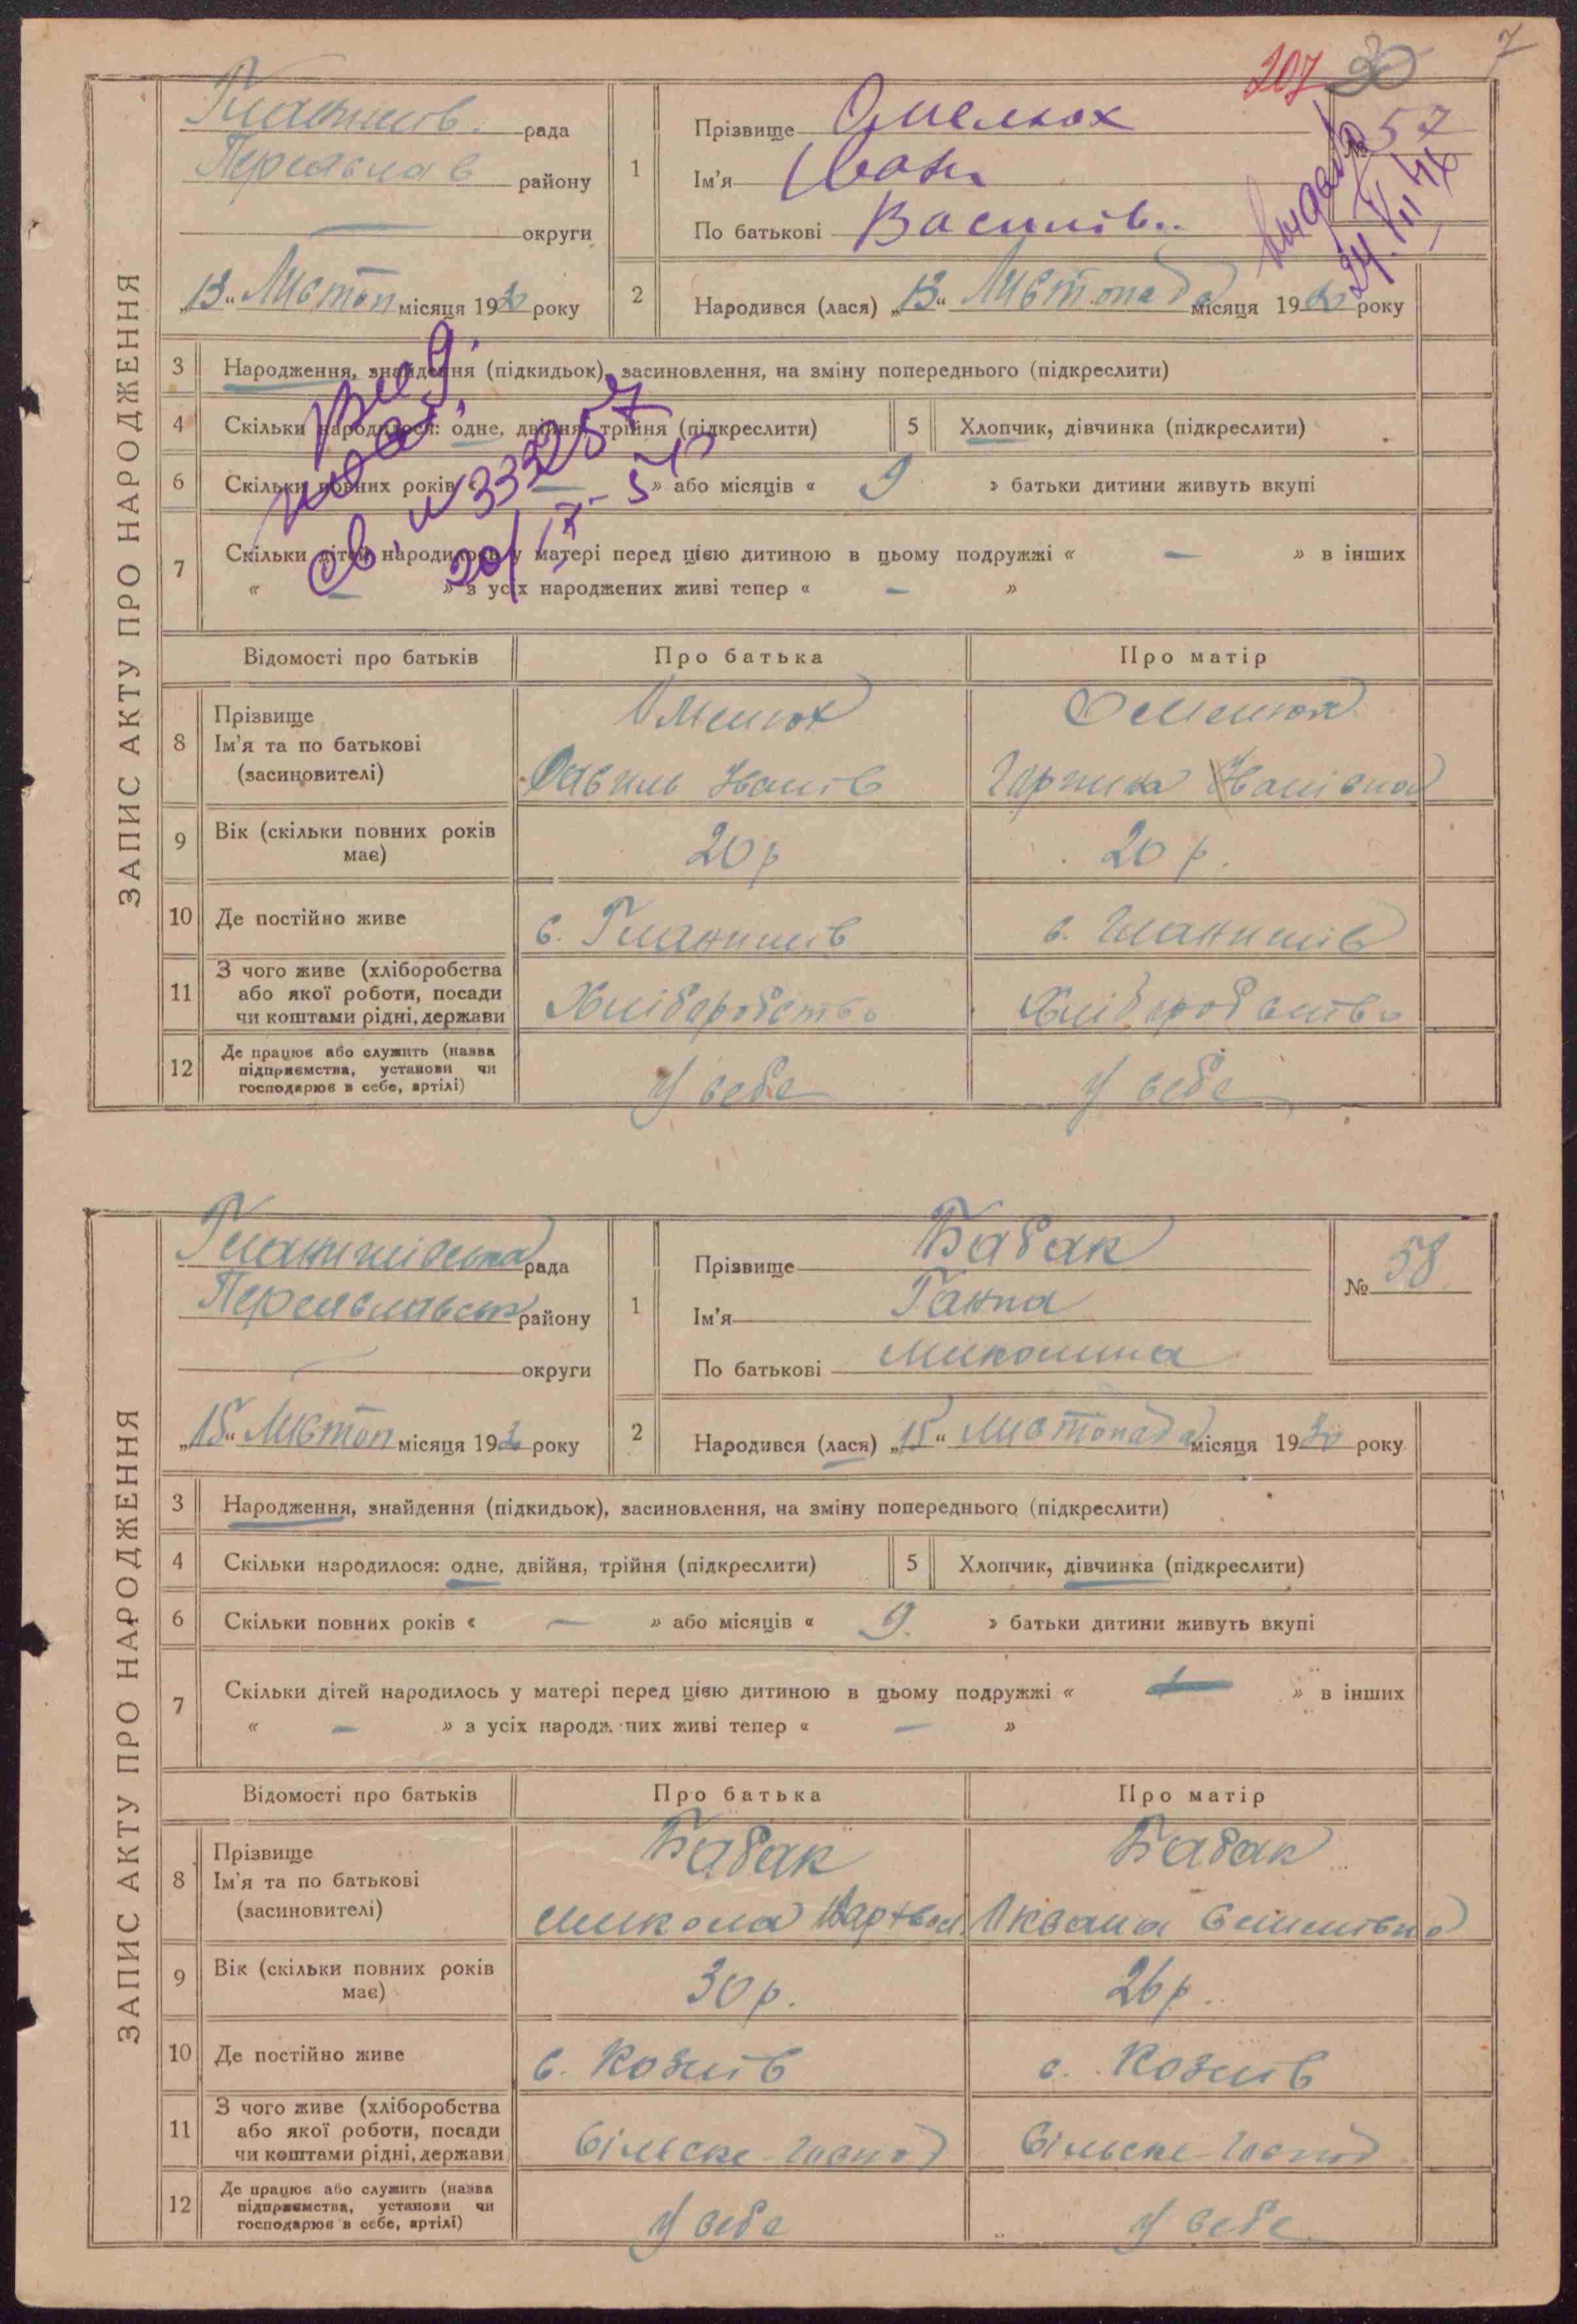 207 30 7
ЗАПИС АКТУ ПРО НАРОДЖЕННЯ
Гланишів. рада
Переяслав району
— округи
„13“ Листоп місяця 1930 року
1
Прізвище Омелюх
Ім'я Іван
По батькові Василів..
№ 57
24. VII 46
2
Народився (лася) „13“ Листопада місяця 1930 року
3 Народження, знайдення (підкидьок), засиновлення, на зміну попереднього (підкреслити)
4 Скільки народилося: одне, двійня, трійня (підкреслити)
5 Хлопчик, дівчинка (підкреслити)
6 Скільки повних років « — » або місяців « 9 » батьки дитини живуть вкупі
7 Скільки дітей народилось у матері перед цією дитиною в цьому подружжі « — » в інших
« — » з усіх народжених живі тепер « — »
Св. № 333257
Відомості про батьків Про батька Про матір
8 Прізвище
Ім'я та по батькові
(засиновителі)
Омелюх
Іванів
Омелюх
Іванівна
9 Вік (скільки повних років
має)
20 р
20 р.
10 Де постійно живе
с. Гланишів
с. Гланишів
11 З чого живе (хліборобства
або якої роботи, посади
чи коштами рідні, держави
Хліборобство
Хліборобство
12 Де працює або служить (назва
підприємства, установи чи
господарює в себе, артілі)
У себе
У себе
ЗАПИС АКТУ ПРО НАРОДЖЕННЯ
Гланишівська рада
Переяславськ району
— округи
„15“ Листоп місяця 1930 року
1
Прізвище Бабак
Ім'я Ганна
По батькові Миколина
№ 58
2
Народився (лася) „15“ Листопада місяця 1930 року
3 Народження, знайдення (підкидьок), засиновлення, на зміну попереднього (підкреслити)
4 Скільки народилося: одне, двійня, трійня (підкреслити)
5 Хлопчик, дівчинка (підкреслити)
6 Скільки повних років « — » або місяців « 9. » батьки дитини живуть вкупі
7 Скільки дітей народилось у матері перед цією дитиною в цьому подружжі « — » в інших
« — » з усіх народж них живі тепер « — »
Відомості про батьків Про батька Про матір
8 Прізвище
Ім'я та по батькові
(засиновителі)
Бабак
Микола
Бабак
9 Вік (скільки повних років
має)
30 р.
26 р.
10 Де постійно живе
с. Козлів
с. Козлів
11 З чого живе (хліборобства
або якої роботи, посади
чи коштами рідні, держави
Сільске-господ
Сільске-господ
12 Де працює або служить (назва
підприємства, установи чи
господарює в себе, артілі)
У себе
У себе